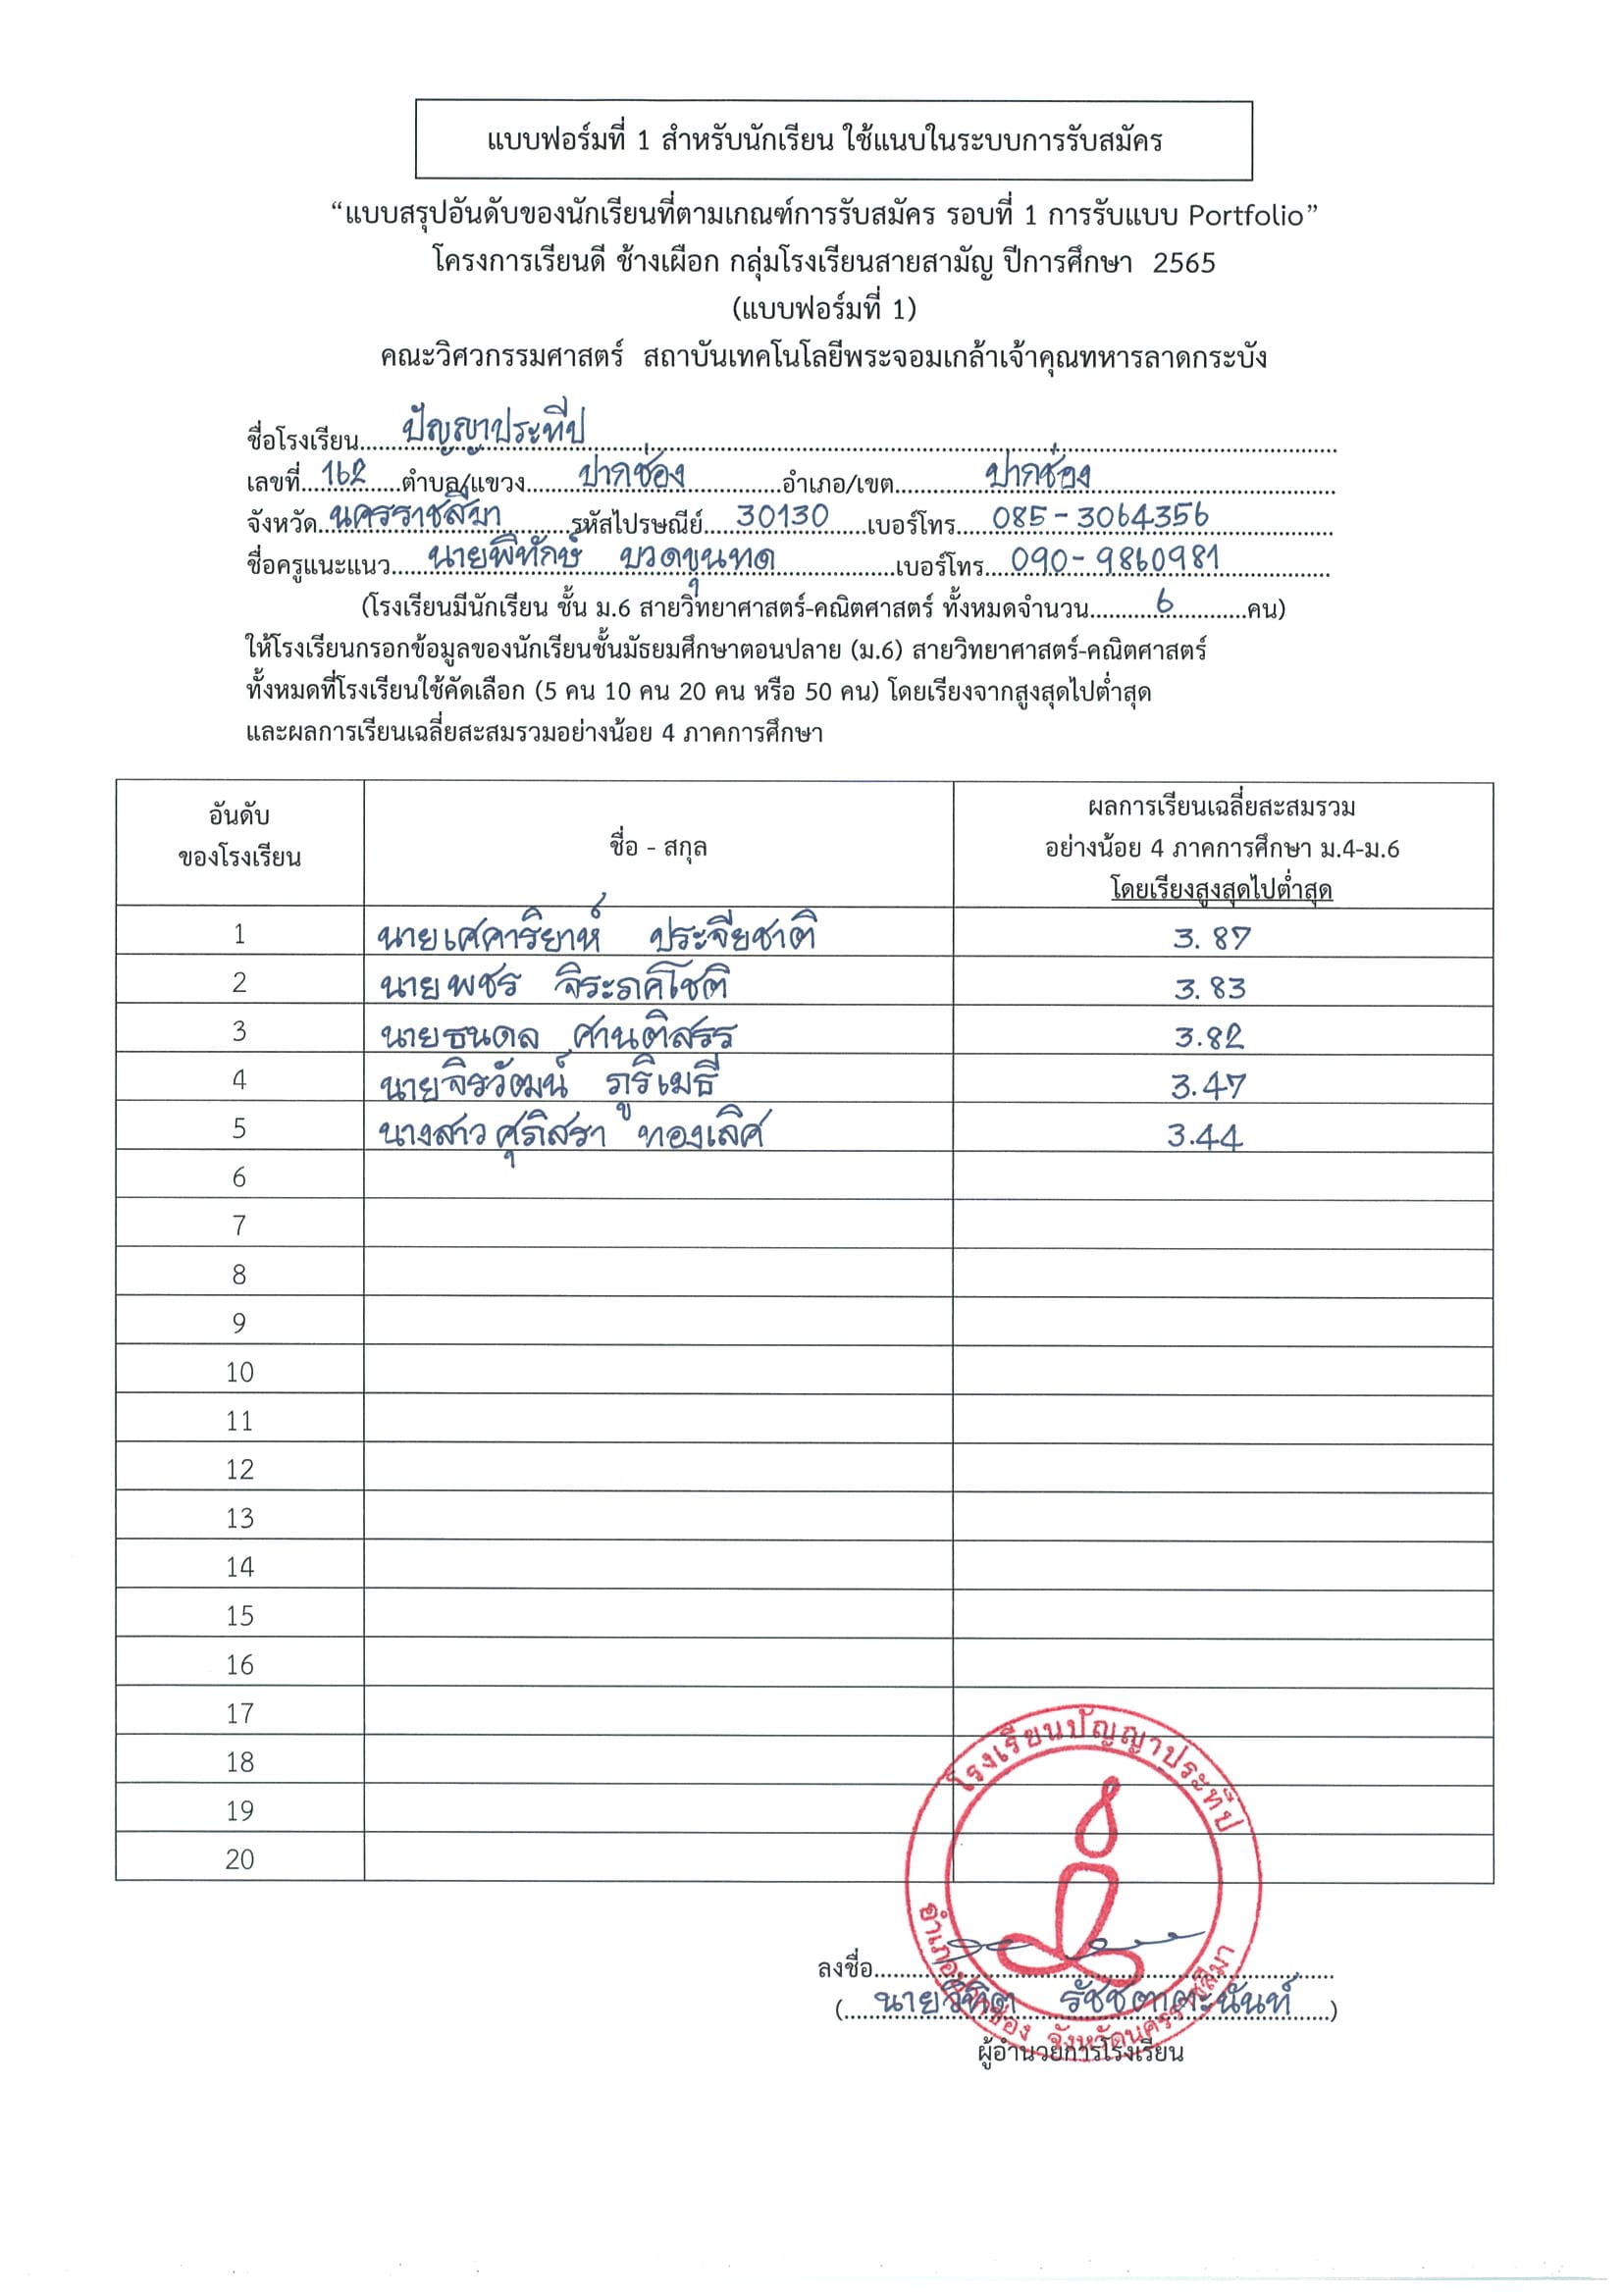 แบบฟอร์มที่ 1 สำหรับนักเรียน ใช้แนบในระบบการรับสมัคร
“แบบสรุปอันดับของนักเรียนที่ตามเกณฑ์การรับสมัคร รอบที่ 1 การรับแบบ Portfolio”
โครงการเรียนดี ช้างเผือก กลุ่มโรงเรียนสายสามัญ ปีการศึกษา 2565
(แบบฟอร์มที่ 1)
คณะวิศวกรรมศาสตร์ สถาบันเทคโนโลยีพระจอมเกล้าเจ้าคุณทหารลาดกระบัง
ชื่อโรงเรียน ปัญญาประทีป
เลขที่ 162 ตำบล/แขวง ปากช่อง อำเภอ/เขต ปากช่อง
จังหวัด นครราชสีมา รหัสไปรษณีย์ 30130 เบอร์โทร 085-3064356
ชื่อครูแนะแนว นายพิทักษ์ บวดขุนทด เบอร์โทร 090-9860981
(โรงเรียนมีนักเรียน ชั้น ม.6 สายวิทยาศาสตร์-คณิตศาสตร์ ทั้งหมดจำนวน 6 คน)
ให้โรงเรียนกรอกข้อมูลของนักเรียนชั้นมัธยมศึกษาตอนปลาย (ม.6) สายวิทยาศาสตร์-คณิตศาสตร์
ทั้งหมดที่โรงเรียนใช้คัดเลือก (5 คน 10 คน 20 คน หรือ 50 คน) โดยเรียงจากสูงสุดไปต่ำสุด
และผลการเรียนเฉลี่ยสะสมรวมอย่างน้อย 4 ภาคการศึกษา
อันดับ
ของโรงเรียน
ชื่อ - สกุล
ผลการเรียนเฉลี่ยสะสมรวม
อย่างน้อย 4 ภาคการศึกษา ม.4-ม.6
โดยเรียงสูงสุดไปต่ำสุด
1 นายเศคาริยาห์ ประจียชาติ 3.87
2 นายพชร จิระภคโชติ 3.83
3 นายธนดล ศานติสรร 3.82
4 นายจิรวัฒน์ ภูริเมธี 3.47
5 นางสาวศุภิสรา ทองเลิศ 3.44
6
7
8
9
10
11
12
13
14
15
16
17
18
19
20
โรงเรียนปัญญาประทีป
อำเภอปากช่อง จังหวัดนครราชสีมา
ลงชื่อ
(นายวิทิต รัชชตาตะนันท์)
ผู้อำนวยการโรงเรียน